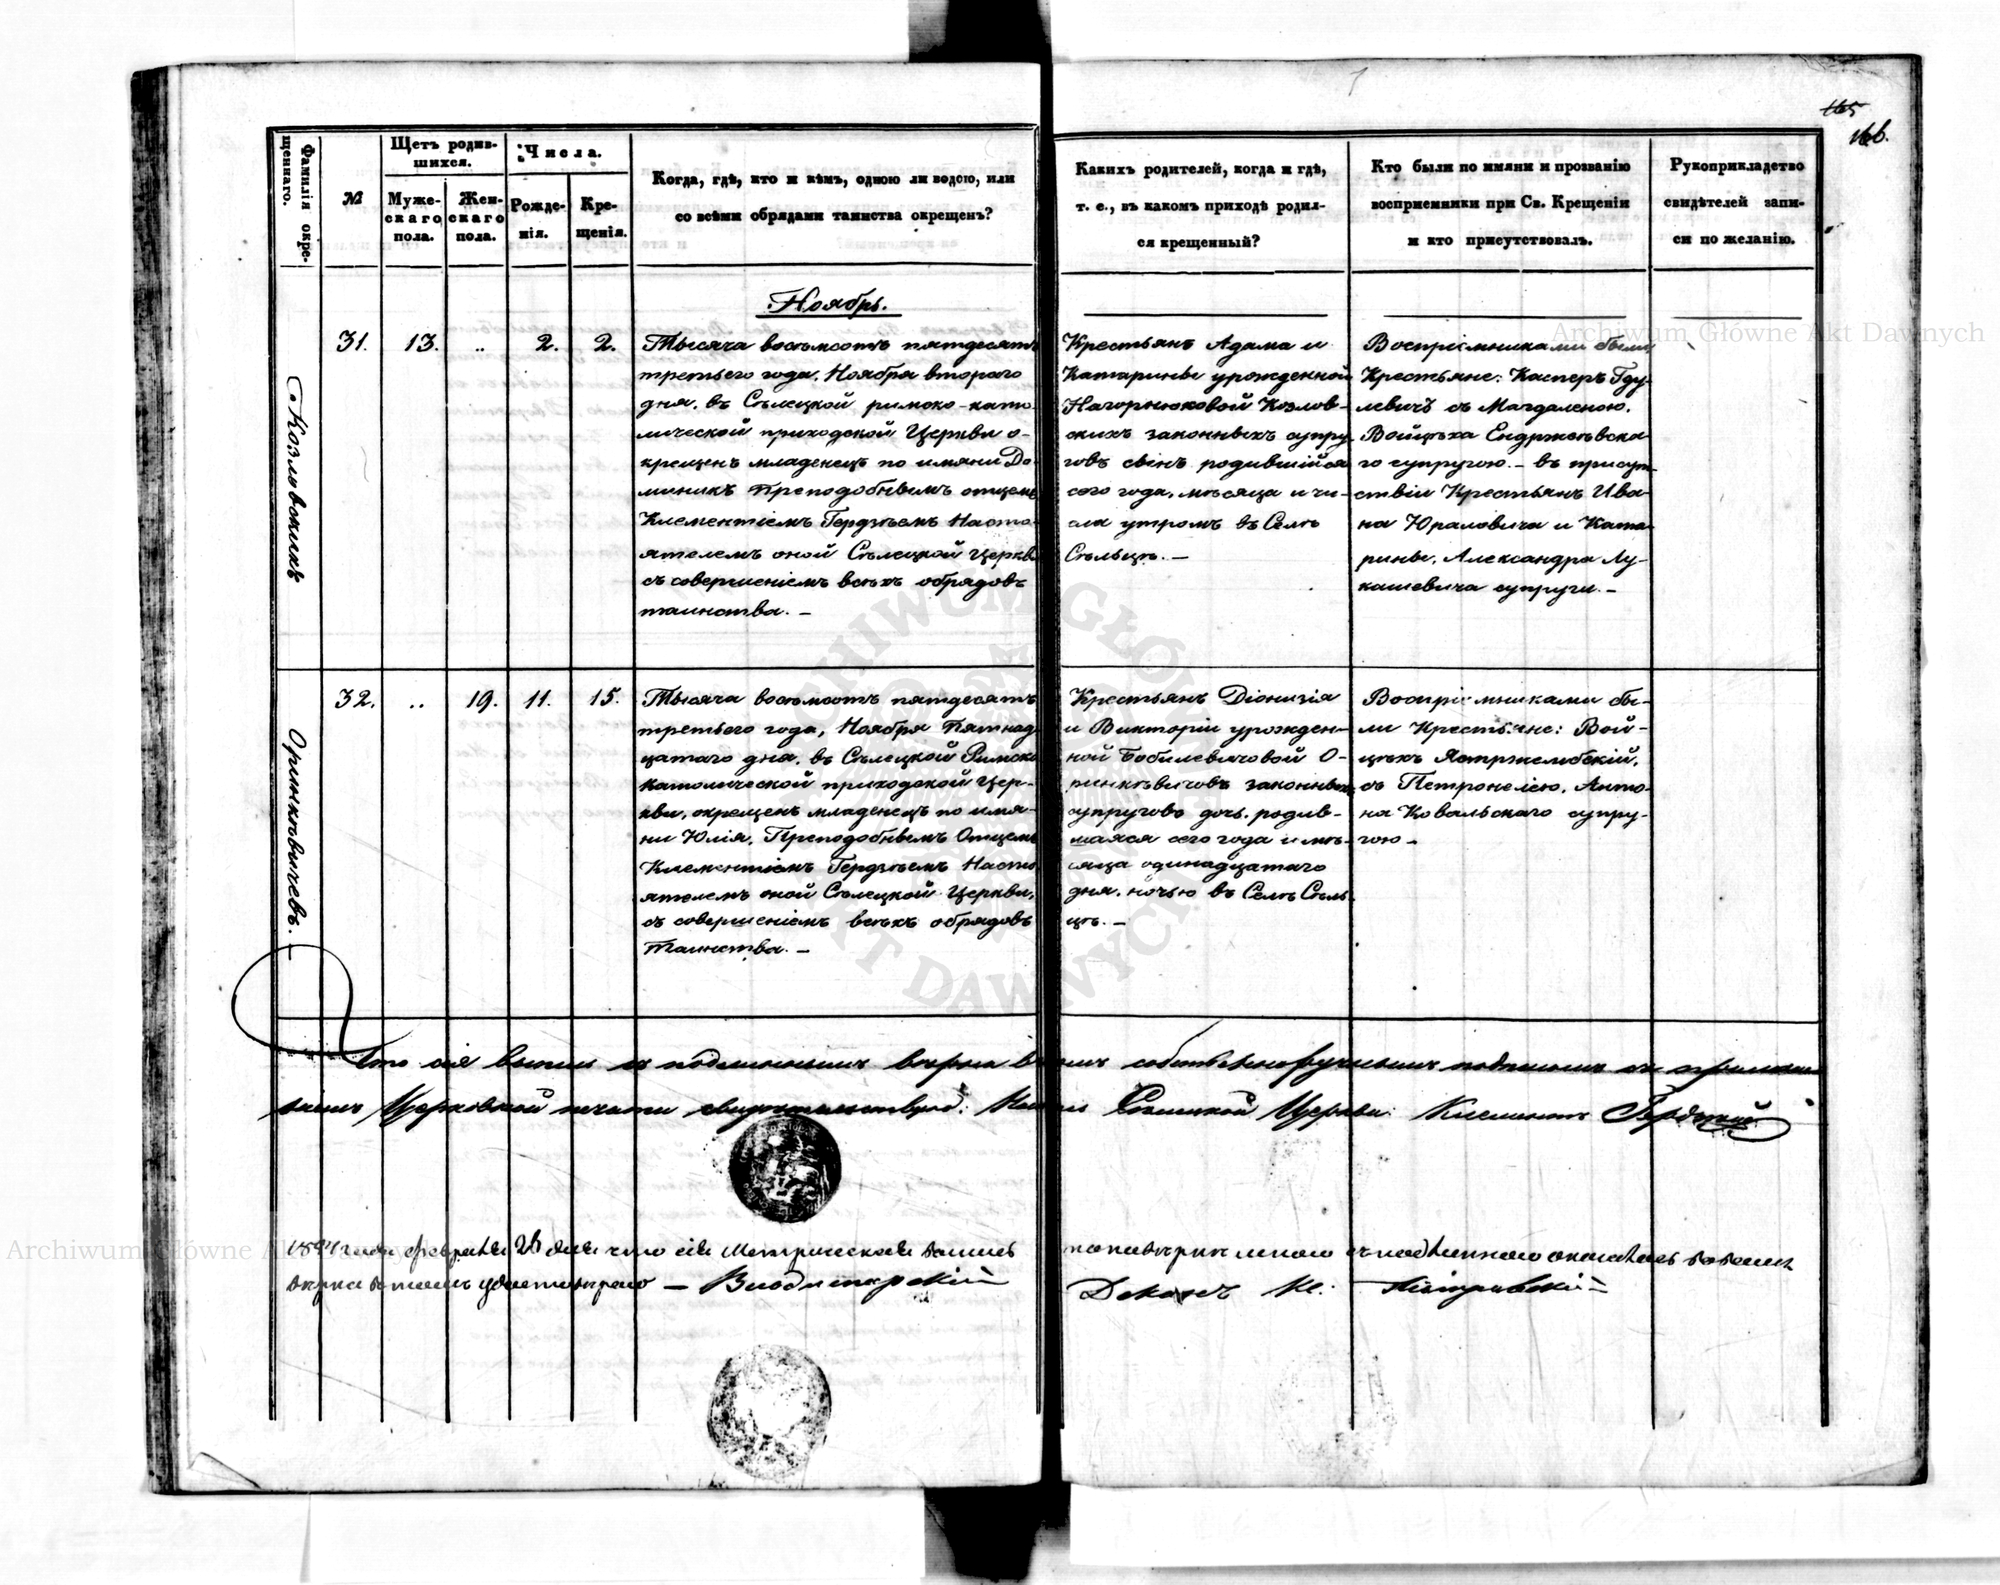 165
166.
Фамилія окре-
щеннаго.
№
Щетъ родив-
шихся.
Муже-
скаго
пола.
Жен-
скаго
пола.
Числа.
Рожде-
нія.
Кре-
щенія.
Когда, гдѣ, кто и кѣмъ, одною ли водою, или
со всѣми обрядами таинства окрещенъ?
Какихъ родителей, когда и гдѣ,
т. е., въ какомъ приходѣ родил-
ся крещенный?
Кто были по имяни и прозванію
восприемники при Св. Крещеніи
и кто присутствовалъ.
Рукоприкладство
свидѣтелей запи-
си по желанію.
Ноябрь.
31. 13. .. 2. 2.
Тысяча восемьсотъ пятдесятъ
третьего года, Ноября втораго
дня, въ Сѣлецкой римско-като-
лической приходской Церкви о-
крещенъ младенецъ по имяни До-
миникъ Преподобнымъ отцемъ
Клементіемъ Гердзѣемъ Насто-
ятелемъ оной Сѣлецкой Церкви
съ совершеніемъ всѣхъ обрядовъ
таинства. —
Крестьянъ Адама и
Катарины урожденной
Нагорнюковой Козлов-
скихъ законныхъ супру-
говъ сынъ родившійся
сего года, мѣсяца и чи-
сла утромъ въ Селѣ
Сѣльцѣ. —
Воспріемниками были
Крестьяне: Касперъ Гду-
левичъ съ Магдаленою,
Войцѣха Ендржеевска-
го супругою. — въ присут-
ствіи Крестьянъ Ива-
на Юраловича и Ката-
рины, Александра Лу-
кашевича супруги. —
32. .. 19. 11. 15.
Орынкѣвичевъ. —
Тысяча восемьсотъ пятдесятъ
третьего года, Ноября Пятнад-
цатаго дня, въ Сѣлецкой Римско
католической приходской Цер-
кви, окрещенъ младенецъ по имя-
ни Юлія, Преподобнымъ Отцемъ
Клементіемъ Гердзѣемъ Насто-
ятелемъ оной Сѣлецкой Церкви,
съ совершеніемъ всѣхъ обрядовъ
Таинства. —
Крестьянъ Діонизія
и Викторіи урожден-
ной Бобилевичовой О-
ринкѣвичовъ законныхъ
супруговъ дочь, родив-
шаяся сего года и мѣ-
сяца одинадцатаго
дня, ночью въ Селѣ Сѣль-
цѣ. —
Воспріемниками бы-
ли Крестьяне: Вой-
цѣхъ Ястржембскій,
съ Петронелею, Анто-
на Ковальскаго супру-
гою —
Что сія выпись съ подлинникомъ вѣрна въ томъ собственноручнымъ подписомъ съ приложе-
ніемъ Церковной печати свидѣтельствую: Сѣлецкой Церкви Клементъ Гердзѣй
1854 года февраля 26 дня что сія Метрическая запись
вѣрна въ томъ удостовѣряю —
Деканъ К.
Archiwum Główne Akt Dawnych
Archiwum Główne Akt Dawnych
ARCHIWUM GŁÓWNE AKT DAWNYCH